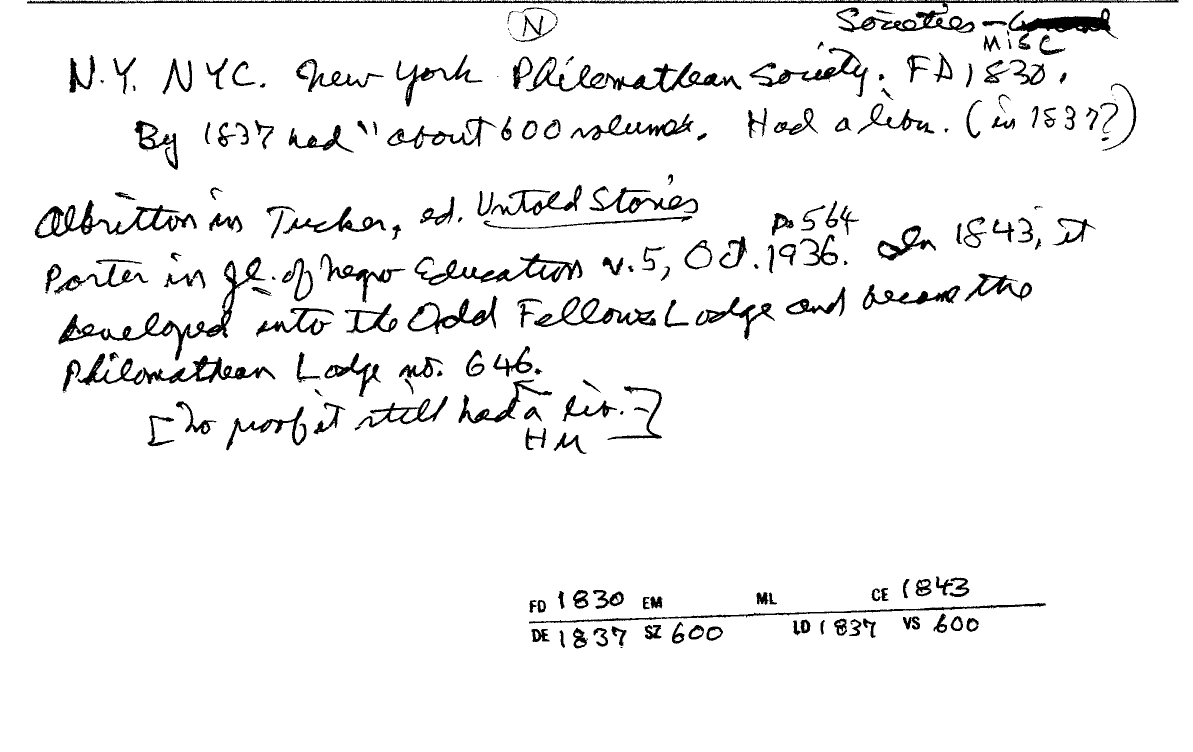 N
Societies – Misc
N.Y. NYC. New York Philomathean Society. FD 1830.
By 1837 had "about 600 volumes. Had a libn. (in 1837?)
Albritton in Tucker, ed. Untold Stories
p. 564
Porter in Jl. of Negro Education v.5, Oct. 1936. In 1843, it
developed into the Odd Fellows Lodge and became the
Philomathean Lodge no. 646.
[No proof it still had a lib.—]
HM
FD 1830 EM ML CE 1843
DE 1837 SZ 600 LD 1837 VS 600